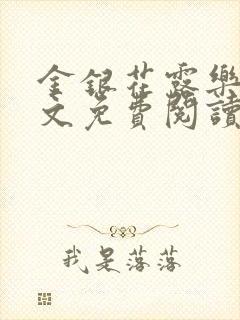 金銀花露樂
文免費閱讀
我是落落